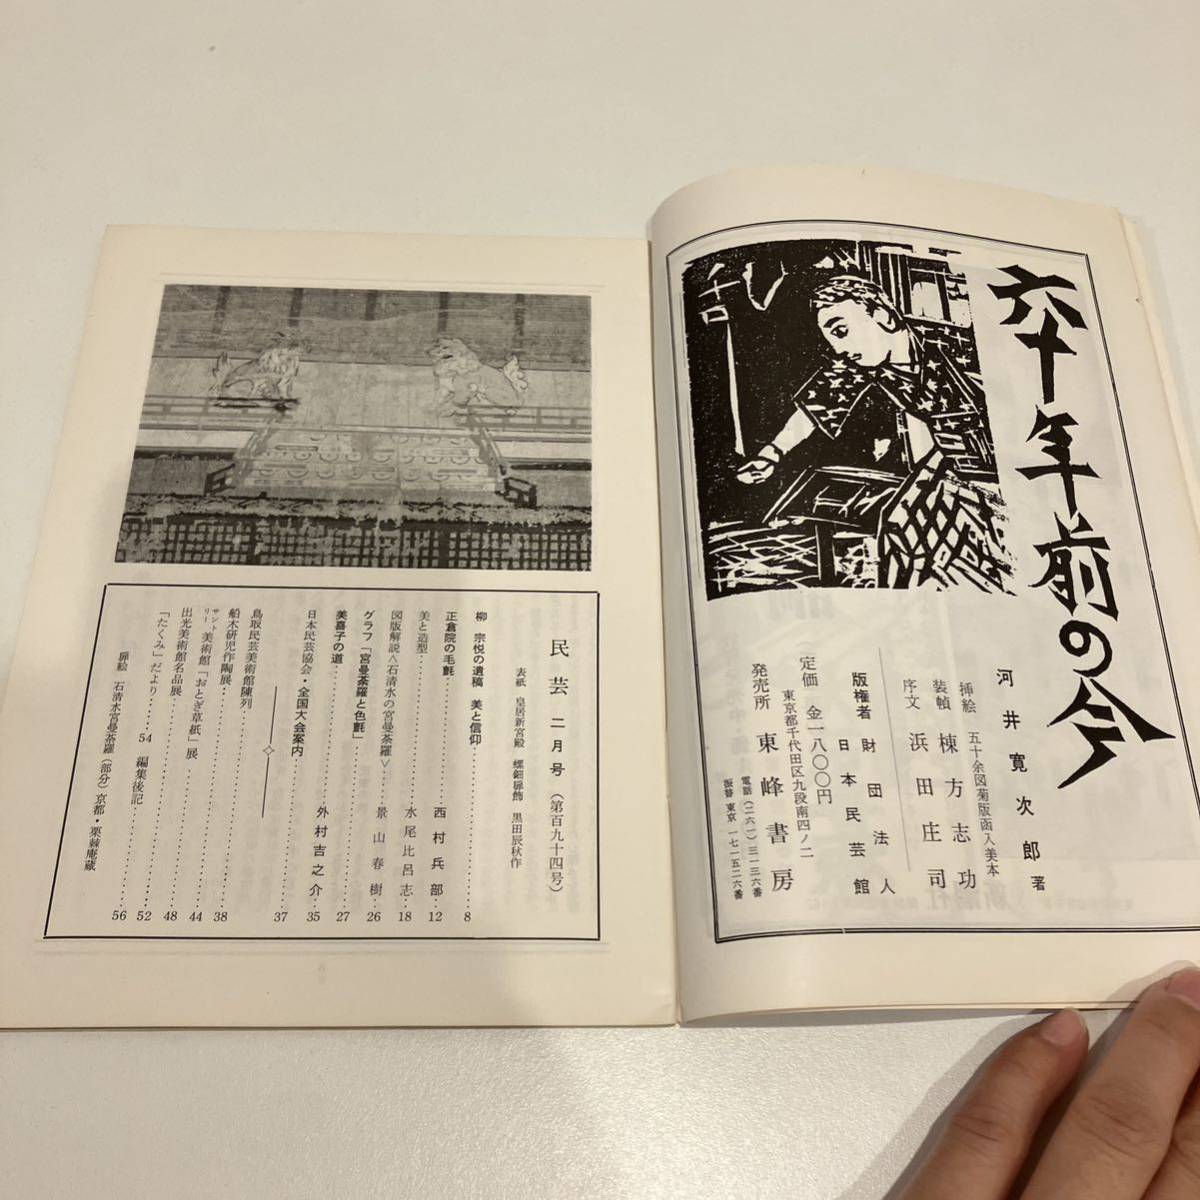 六十年前の今
河井寛次郎著
挿絵 五十余図菊版函入美本
装幀 棟方志功
序文 浜田庄司
版権者 財団法人 日本民芸館
定価 金一八〇〇円
東京都千代田区九段南四ノ二
発売所 東峰書房
電話(二六一)三一三六番
振替東京一七一五二六番
民芸 二月号(第百九十四号)
表紙 皇居新宮殿 螺鈿扉飾 黒田辰秋作
柳 宗悦の遺稿 美と信仰 8
正倉院の毛氈 西村兵部 12
美と造型 水尾比呂志 18
図版解説〈石清水の宮曼荼羅〉 景山春樹 26
グラフ「宮曼荼羅と色氈」 27
美喜子の道 外村吉之介 35
日本民芸協会・全国大会案内 37
鳥取民芸美術館陳列 38
船木研児作陶展 44
サントリー美術館「おとぎ草紙」展 48
出光美術館名品展 52
「たくみ」だより 54 編集後記 56
扉絵 石清水宮曼荼羅(部分)京都・栗棘庵蔵